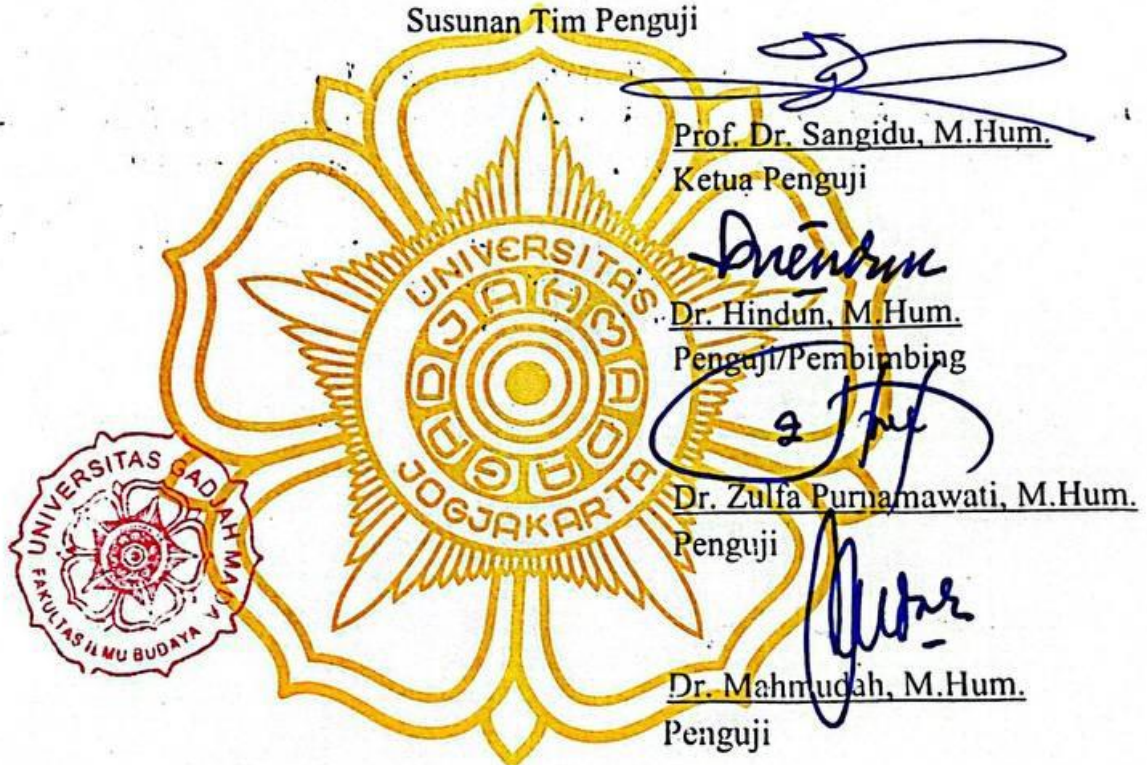 Susunan Tim Penguji
Prof. Dr. Sangidu, M.Hum.
Ketua Penguji
Dr. Hindun, M.Hum.
Penguji/Pembimbing
Dr. Zulfa Purnamawati, M.Hum.
Penguji
Dr. Mahmudah, M.Hum.
Penguji
UNIVERSITAS
GADJAH MADA
JOGJAKARTA
UNIVERSITAS GADJAH MADA
FAKULTAS ILMU BUDAYA